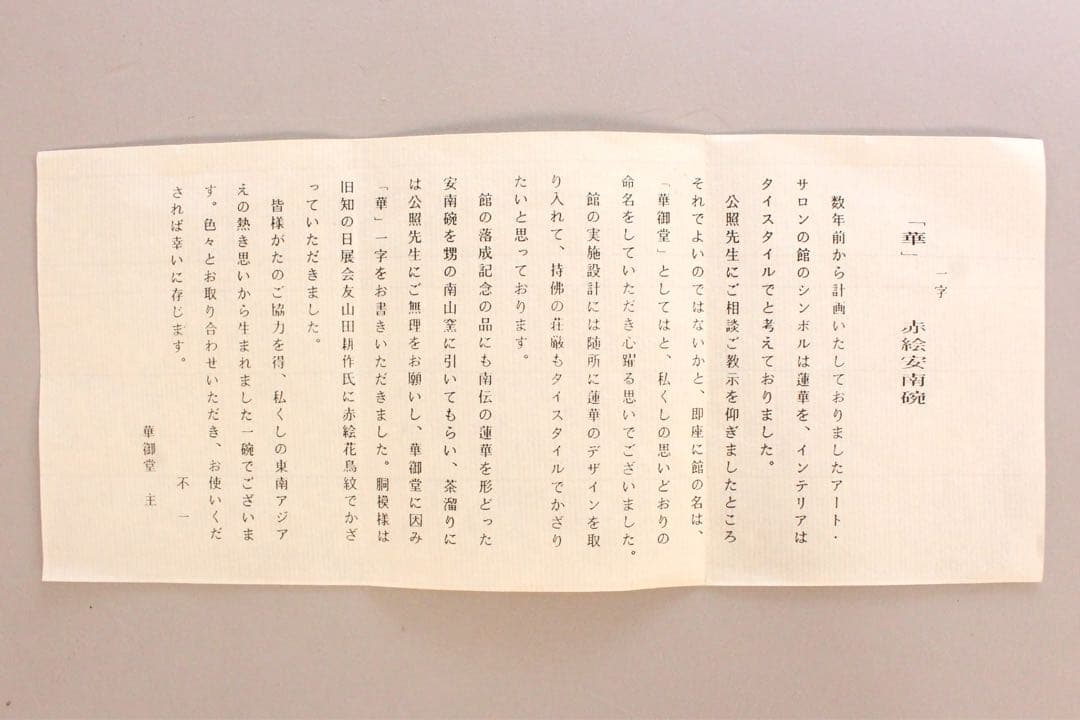 一字
「華」　赤絵安南碗
数年前から計画いたしておりましたアート・
サロンの館のシンボルは蓮華を、インテリアは
タイスタイルでと考えておりました。
公照先生にご相談ご教示を仰ぎましたところ
それでよいのではないかと、即座に館の名は、
「華御堂」としてはと、私くしの思いどおりの
命名をしていただき心躍る思いでございました。
館の実施設計には随所に蓮華のデザインを取
り入れて、持佛の荘厳もタイスタイルでかざり
たいと思っております。
館の落成記念の品にも南伝の蓮華を形どった
安南碗を甥の南山窯に引いてもらい、茶溜りに
は公照先生にご無理をお願いし、華御堂に因み
「華」一字をお書きいただきました。胴模様は
旧知の日展会友山田耕作氏に赤絵花鳥紋でかざ
っていただきました。
皆様がたのご協力を得、私くしの東南アジア
えの熱き思いから生まれました一碗でございま
す。色々とお取り合わせいただき、お使いくだ
されば幸いに存じます。
不一
華御堂　主